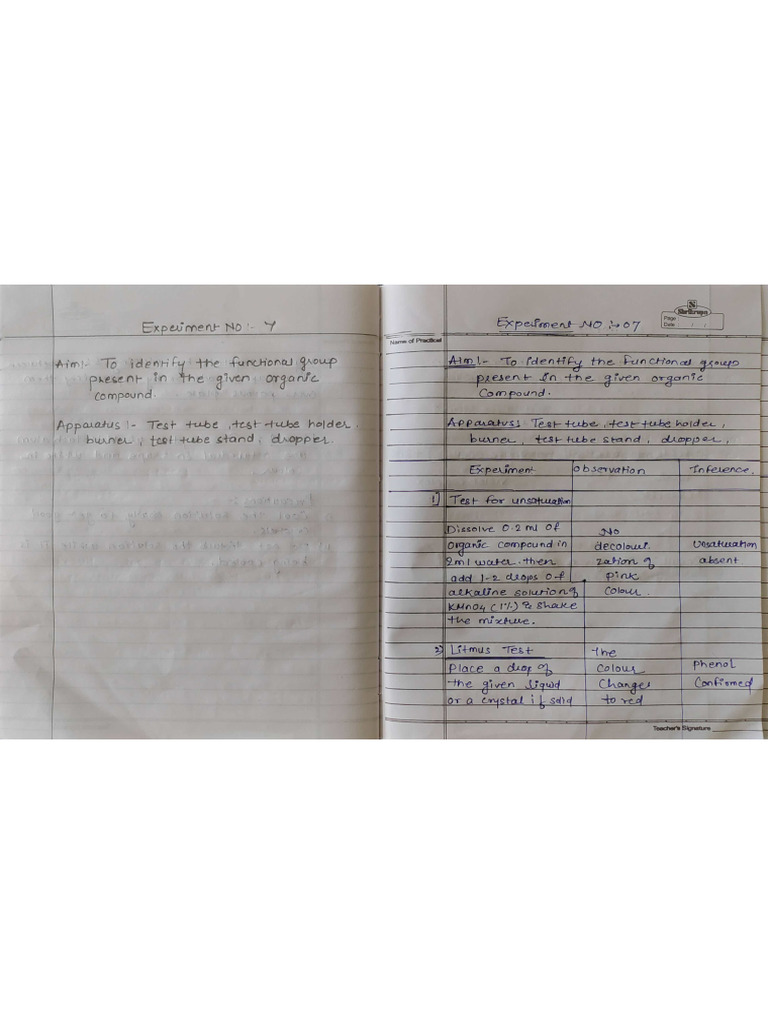 Experiment No :- 7
Aim :- To identify the functional group
present in the given organic
compound.
Apparatus :- Test tube, test tube holder,
burner, test tube stand, dropper.
Shrikrupa
Page
Date / /
Experiment NO :- 07
Name of Practical
Aim :- To identify the functional group
present in the given organic
Compound.
Apparatus: Test tube, test tube holder,
burner, test tube stand, dropper,
Experiment Observation Inference.
1) Test for unsaturation
Dissolve 0.2 ml of No
organic compound in decolouri- Unsaturation
2ml water. then zation of absent
add 1-2 drops of pink
alkaline solution of colour.
KMnO4 (1%) & shake
the mixture.
2) Litmus Test the
Place a drop of Colour Phenol
the given liquid Changes Confirmed
or a crystal if solid to red
Teacher's Signature